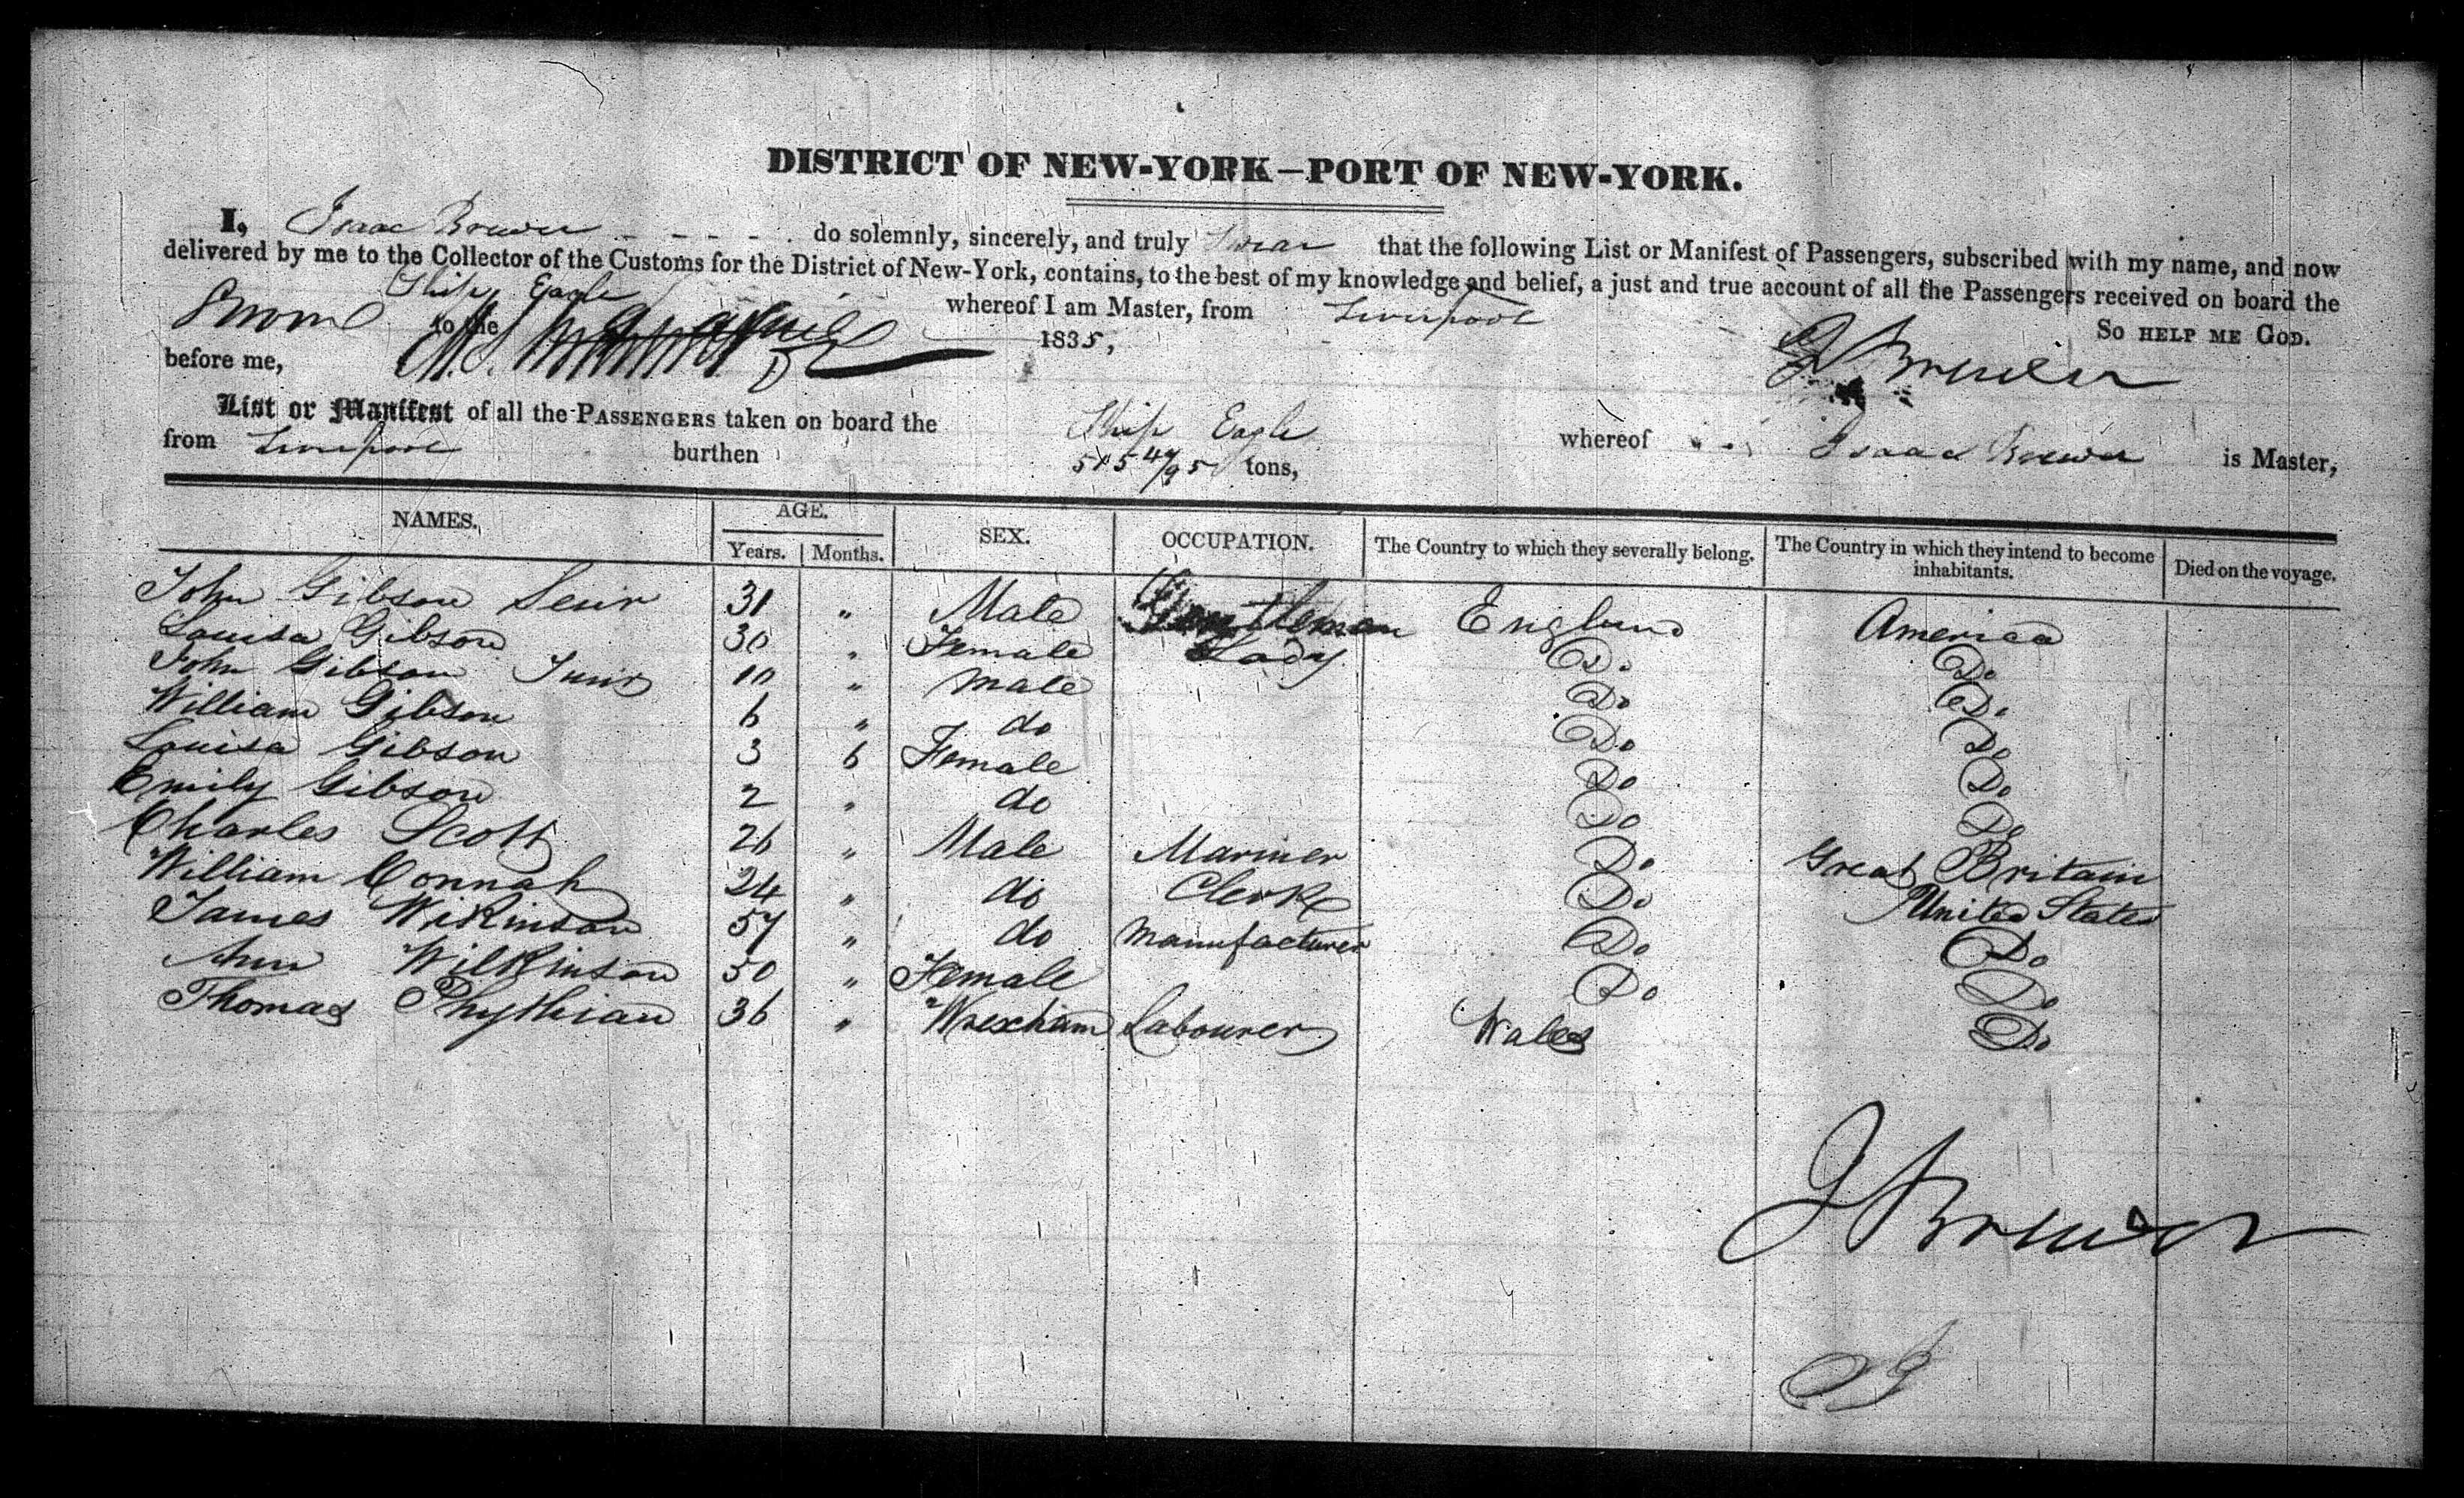 DISTRICT OF NEW-YORK—PORT OF NEW-YORK.
I, Isaac Brewer - - - - - do solemnly, sincerely, and truly Swear that the following List or Manifest of Passengers, subscribed with my name, and now
delivered by me to the Collector of the Customs for the District of New-York, contains, to the best of my knowledge and belief, a just and true account of all the Passengers received on board the
Ship Eagle whereof I am Master, from Liverpool
Sworn to the 1835, So HELP ME GOD.
before me, I Brewer
List or Manifest of all the PASSENGERS taken on board the Ship Eagle whereof Isaac Brewer is Master,
from Liverpool burthen tons,
NAMES. AGE. SEX. OCCUPATION. The Country to which they severally belong. The Country in which they intend to become inhabitants. Died on the voyage.
Years. Months.
John Gibson Senir 31 " Male Gentleman England America
Louisa Gibson 30 " Female Lady Do Do
John Gibson Junir 10 " Male Do Do
William Gibson 6 " do Do Do
Louisa Gibson 3 6 Female Do Do
Emily Gibson 2 " do Do Do
Charles Scott 26 " Male Mariner Do Great Britain
William Connah 24 " do Clerk Do United States
James Wilkinson 57 " do Manufacturer Do Do
Ann Wilkinson 50 " Female Do Do
Thomas Phythian 36 " Wrexham Labourer Wales Do
I Brewer